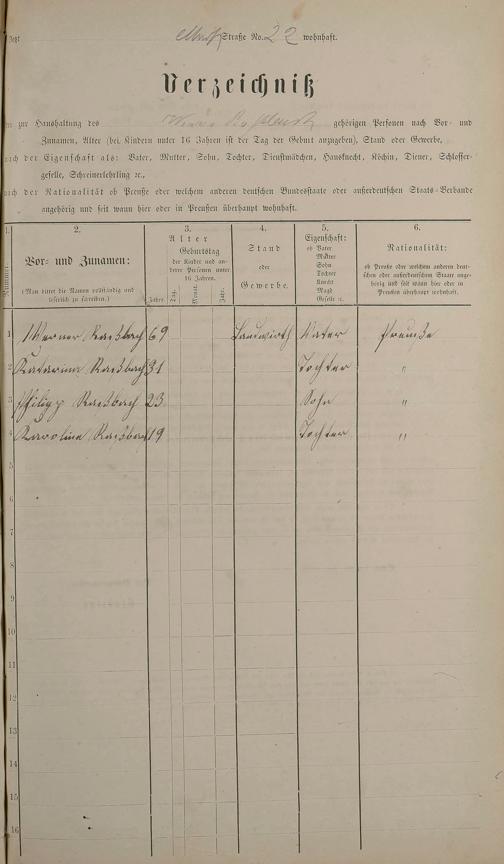 Jetzt Straße No. 22 wohnhaft.
Verzeichniß
der zur Haushaltung des gehörigen Personen nach Vor- und
Zunamen, Alter (bei Kindern unter 16 Jahren ist der Tag der Geburt anzugeben), Stand oder Gewerbe,
nach der Eigenschaft als: Vater, Mutter, Sohn, Tochter, Dienstmädchen, Hausknecht, Köchin, Diener, Schlosser-
geselle, Schreinerlehrling ꝛc.,
nach der Nationalität ob Preuße oder welchem anderen deutschen Bundesstaate oder außerdeutschen Staats-Verbande
angehörig und seit wann hier oder in Preußen überhaupt wohnhaft.
1. 2. 3. 4. 5. 6.
Nummer.
Vor- und Zunamen:
(Man bittet die Namen vollständig und
leserlich zu schreiben.)
Alter
Geburtstag
der Kinder und an-
derer Personen unter
16 Jahren.
Jahre. Tag. Monat. Jahr.
Stand
oder
Gewerbe.
Eigenschaft:
ob Vater
Mutter
Sohn
Tochter
Knecht
Magd
Geselle ꝛc.
Nationalität:
ob Preuße oder welchem anderen deut-
schen oder außerdeutschen Staate ange-
hörig und seit wann hier oder in
Preußen überhaupt wohnhaft.
1 Werner Raßbach 69 Landwirth Vater Preuße
2 Katarina Raßbach 31 Tochter "
3 Philipp Raßbach 23 Sohn "
4 Karoline Raßbach 19 Tochter "
5
6
7
8
9
10
11
12
13
14
15
16